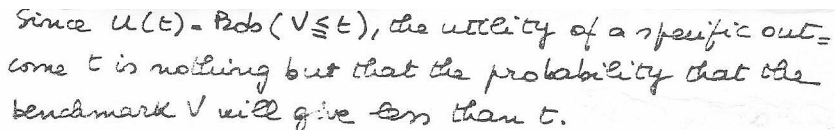 Since u(t) = Prob (V ≤ t), the utility of a specific out=
come t is nothing but that the probability that the
benchmark V will give less than t.